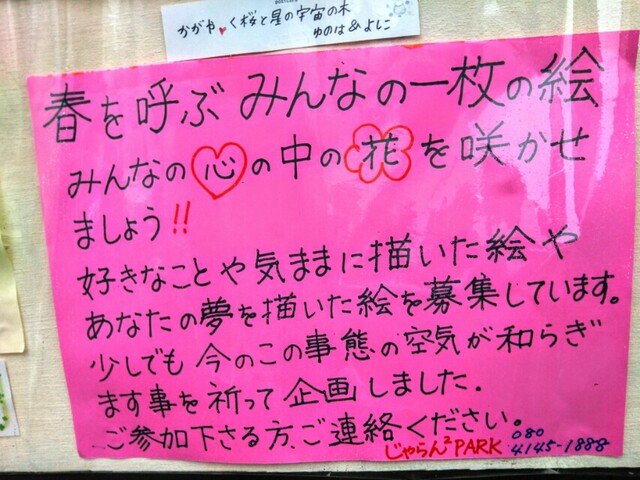 かがや♥く桜と星の宇宙の木
ゆのは&よしこ
春を呼ぶ みんなの一枚の絵
みんなの心の中の花を咲かせ
ましょう!!
好きなことや気ままに描いた絵や
あなたの夢を描いた絵を募集しています。
少しでも 今のこの事態の空気が和らぎ
ます事を祈って企画しました.
ご参加下さる方、ご連絡ください。
じゃらん²PARK 080
4145-1888